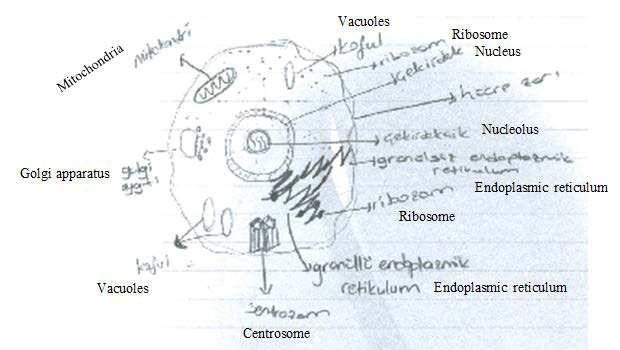 Vacuoles
koful
Ribosome
ribozom
Nucleus
Çekirdek
Mitochondria
mitokondri
hücre zarı
Nucleolus
Çekirdekcik
granülsüz endoplazmik
retikulum
Endoplasmic reticulum
Golgi apparatus
golgi
aygıtı
ribozom
Ribosome
koful
Vacuoles
granüllü endoplazmik
retikulum
Endoplasmic reticulum
Sentrozom
Centrosome